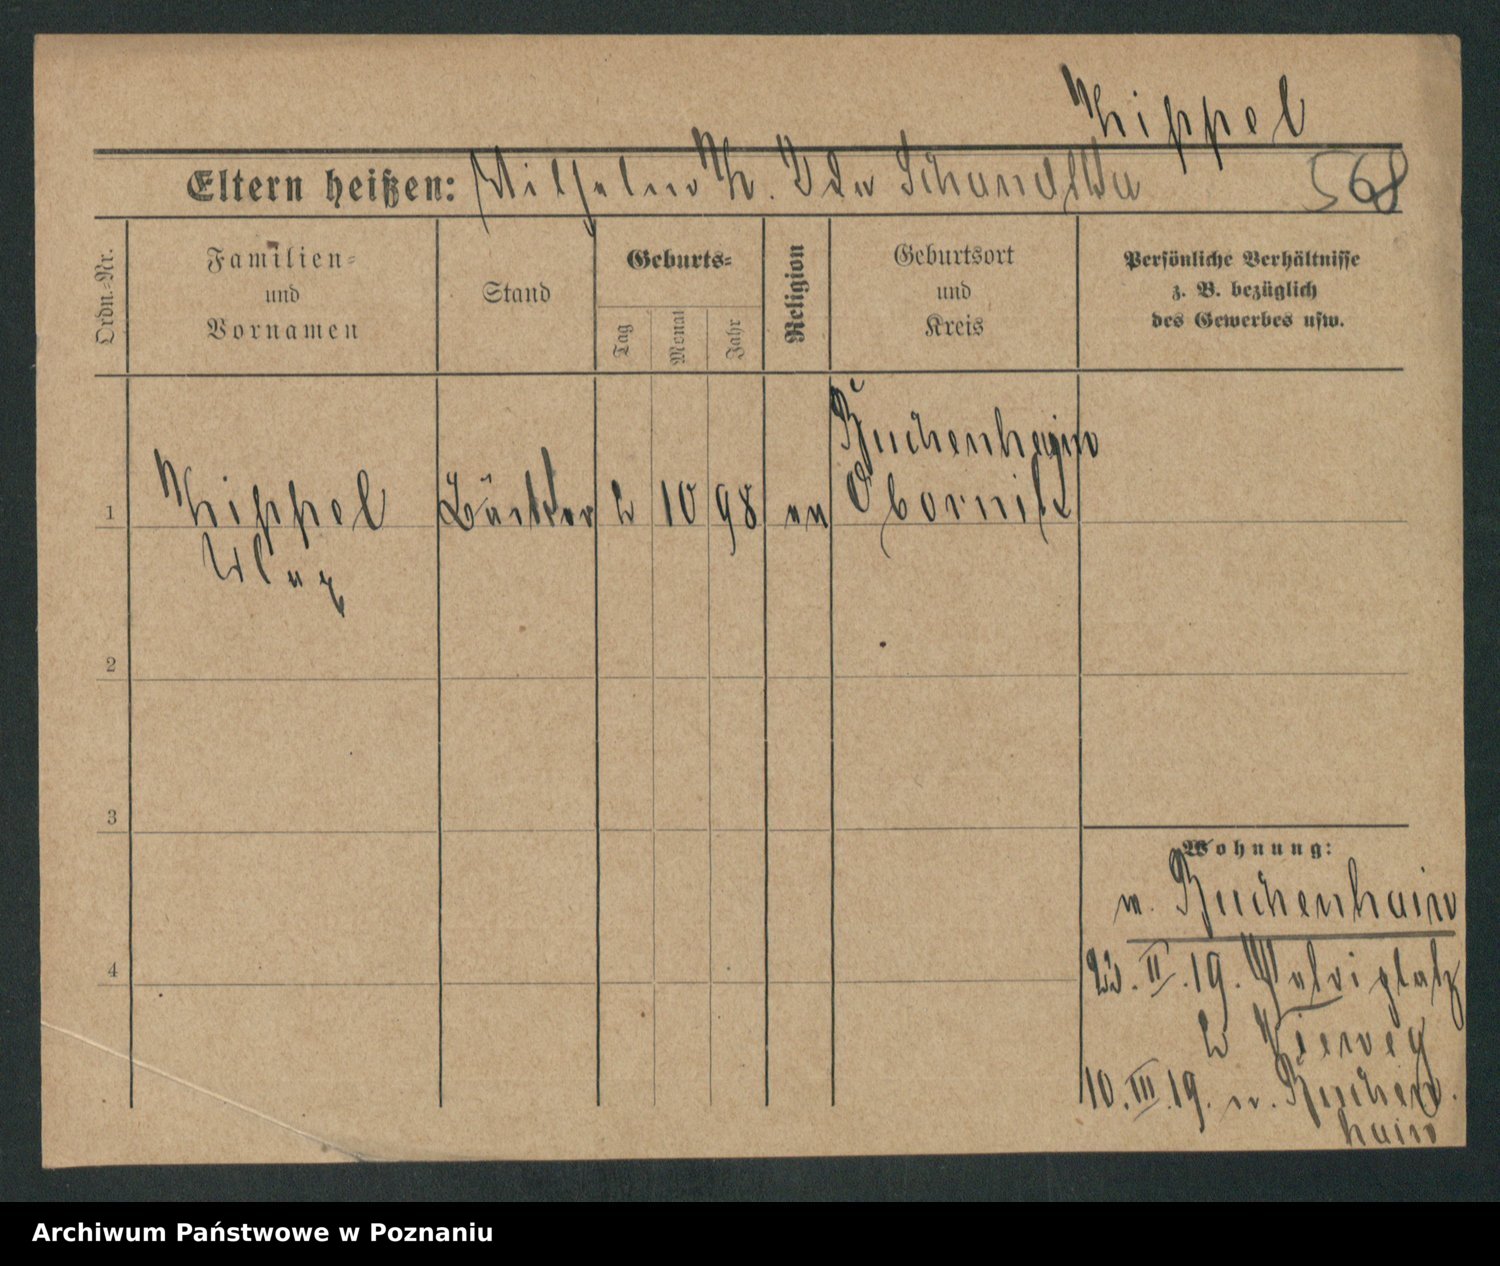 Hippel
Eltern heißen: Wilhelm H. Ida
568
Ordn.-Nr.
Familien-
und
Vornamen
Stand
Geburts-
Tag
Monat
Jahr
Religion
Geburtsort
und
Kreis
Persönliche Verhältnisse
z. B. bezüglich
des Gewerbes usw.
Buchenhain
1 Hippel Bäcker 2 10 98 ev Obornik
Max
2
3
4
Wohnung:
n. Buchenhain
II. 19.
2 Vieweg
10. III. 19. n. Buchen
hain
Archiwum Państwowe w Poznaniu